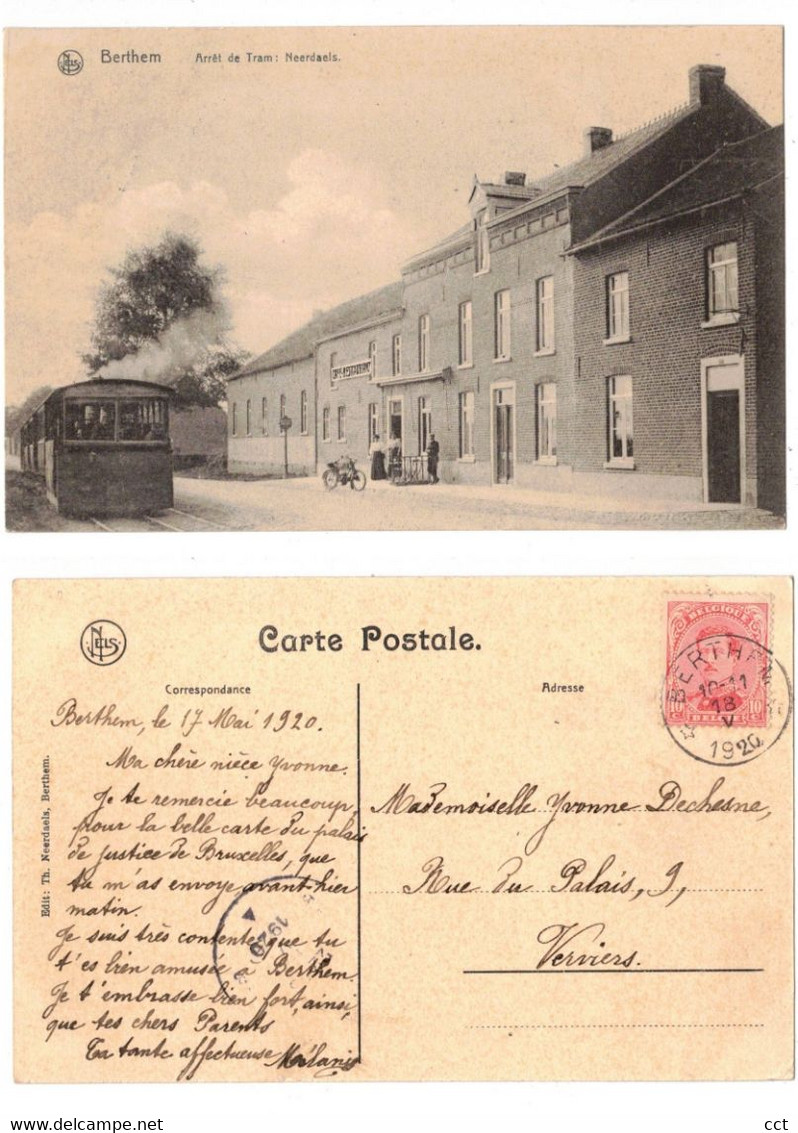 NELS
Berthem Arrêt de Tram: Neerdaels.
NELS
Carte Postale.
Correspondance
Adresse
BELGIQUE
10 10
BELGIË
BERTHEM
10-11
18
V
1920
Edit: Th. Neerdaels, Berthem.
Berthem, le 17 Mai 1920.
Ma chère nièce Yvonne.
Je te remercie beaucoup,
pour la belle carte du palais
de justice de Bruxelles, que
tu m'as envoyé avant-hier
matin.
Je suis très contente que tu
t'es bien amusée à Berthem.
Je t'embrasse bien fort, ainsi,
que tes chers Parents
Ta tante affectueuse Mélanie
1920
Mademoiselle Yvonne Dechesne,
Rue du Palais, 9,
Verviers.
cct
www.delcampe.net